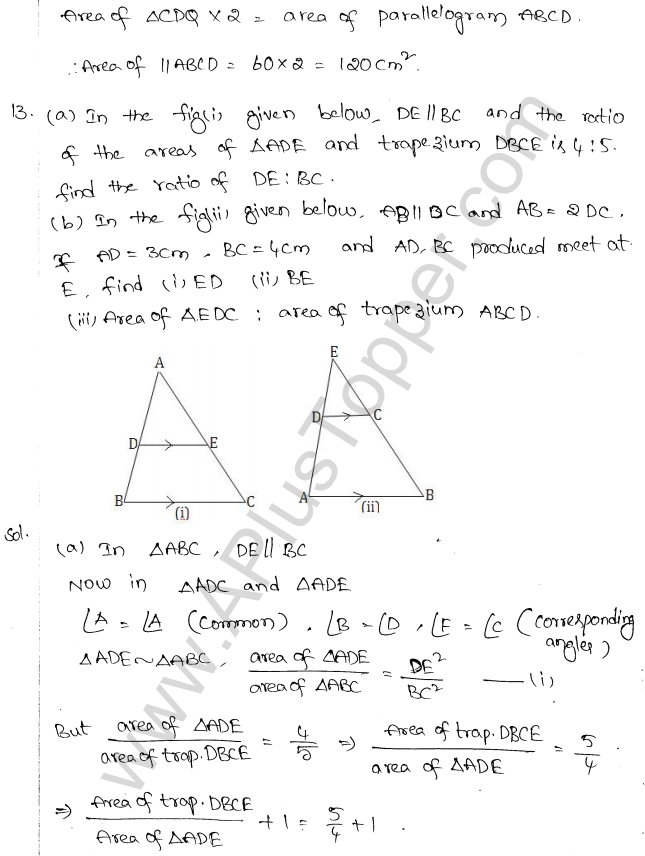 Area of ΔCDQ × 2 = area of parallelogram ABCD.
∴ Area of ||ABCD = 60 × 2 = 120 cm².
13. (a) In the fig(i) given below, DE || BC and the ratio
of the areas of ΔADE and trapezium DBCE is 4 : 5.
find the ratio of DE : BC.
(b) In the fig(ii) given below, AB || DC and AB = 2 DC.
If AD = 3cm, BC = 4cm and AD, BC produced meet at
E, find (i) ED (ii) BE
(iii) Area of ΔEDC : area of trapezium ABCD.
A
D E
B C
(i)
E
D C
A B
(ii)
Sol.
(a) In ΔABC, DE || BC
Now in ΔADC and ΔADE
∠A = ∠A (Common), ∠B = ∠D, ∠E = ∠C (corresponding angles)
ΔADE ~ ΔABC, area of ΔADE / area of ΔABC = DE² / BC² —— (i)
But area of ΔADE / area of trap. DBCE = 4/5 ⇒ Area of trap. DBCE / area of ΔADE = 5/4.
⇒ Area of trap. DBCE / Area of ΔADE + 1 = 5/4 + 1.
www.APlusTopper.com